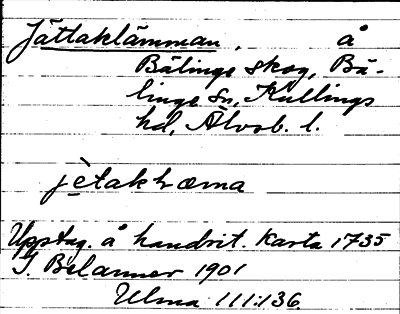 Jättaklämman, å
Bälinge skog, Bä-
linge sn, Kullings
hd, Älvsb. l.
jètakłæma
Upptag. å handrit. karta 1735
J. Belanner 1901
Ulma 111:136